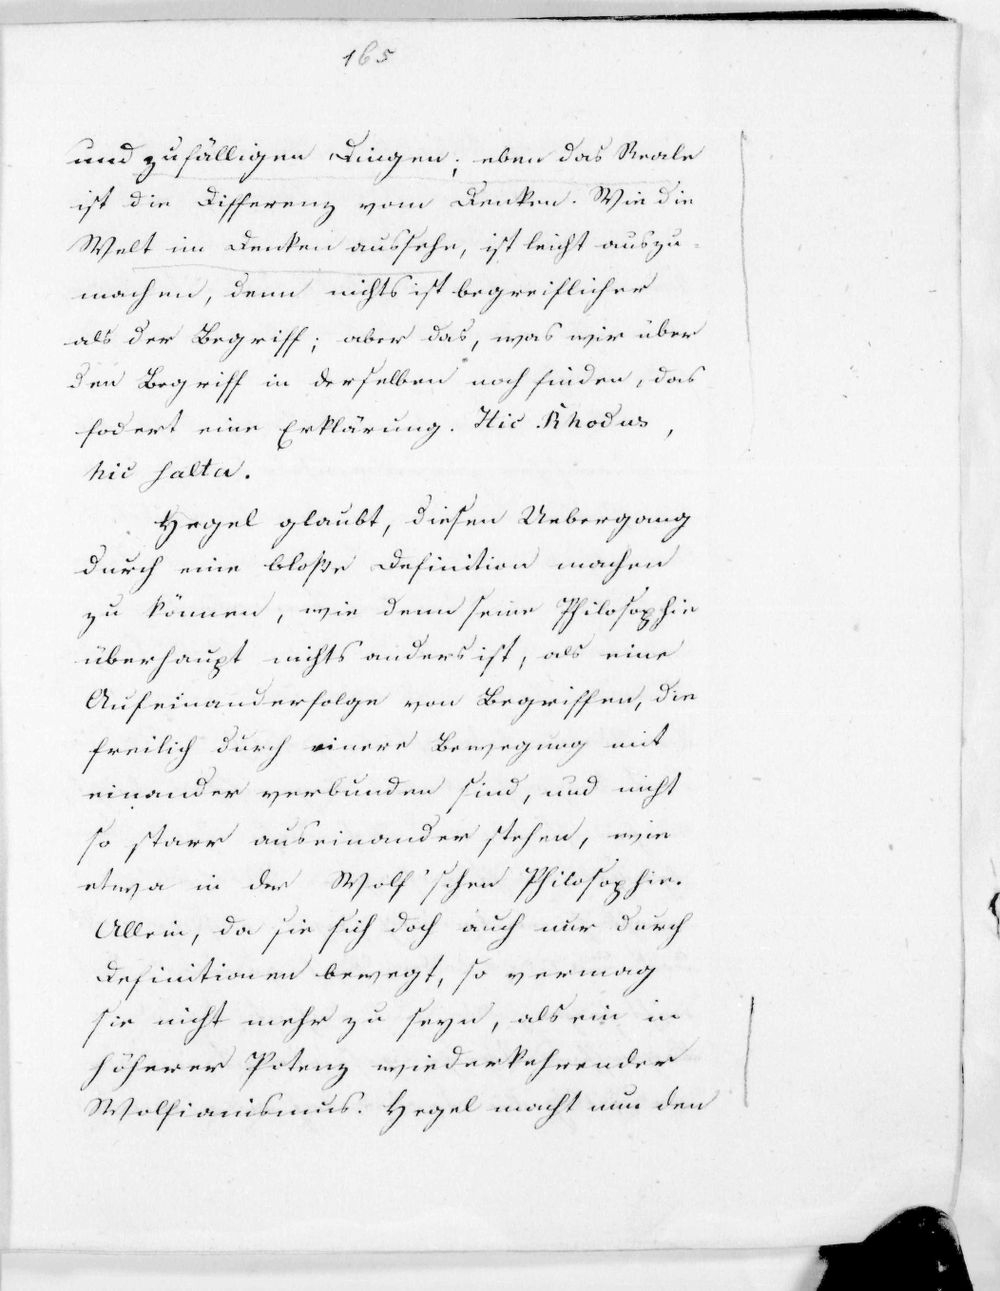 165
und zufälligen Dingen; eben das Reale
ist die Differenz vom Denken. Wie die
Welt im Denken aussehe, ist leicht auszu-
machen, denn nichts ist begreiflicher
als der Begriff; aber das, was wir über
den Begriff in derselben noch finden, das
fodert eine Erklärung. Hic Rhodus,
hic salta.
Hegel glaubt, diesen Uebergang
durch eine bloße Definition machen
zu können, wie denn seine Philosophie
überhaupt nichts anders ist, als eine
Aufeinanderfolge von Begriffen, die
freilich durch innere Bewegung mit
einander verbunden sind, und nicht
so starr auseinander stehen, wie
etwa in der Wolf'schen Philosophie.
Allein, da sie sich doch auch nur durch
Definitionen bewegt, so vermag
sie nicht mehr zu seyn, als ein in
höherer Potenz wiederkehrender
Wolfianismus. Hegel macht nun den